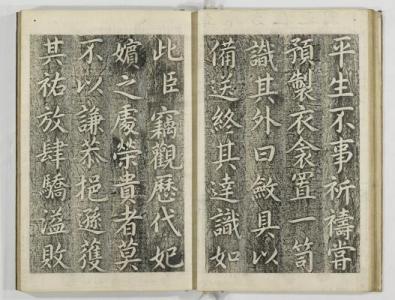 平生不事祈禱嘗
預製衣衾置一笥
識其外曰斂具以
備送終其達識如
此臣竊觀歷代妃
嬪之處榮貴者莫
不以謙恭挹遜獲
其祐放肆驕溢敗